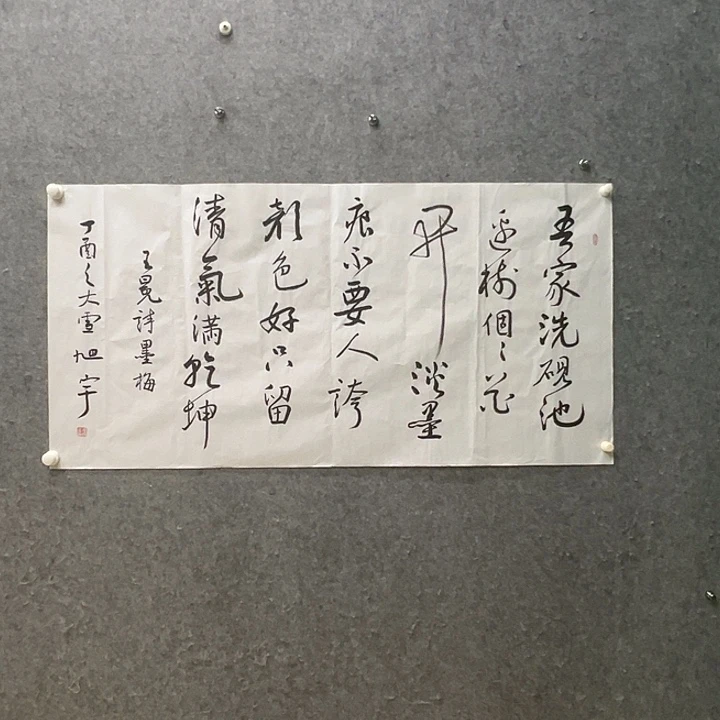 吾家洗硯池
邊樹個々花
開淡墨
痕不要人誇
顏色好只留
清氣滿乾坤
王冕詩墨梅
丁酉之大雪旭宇